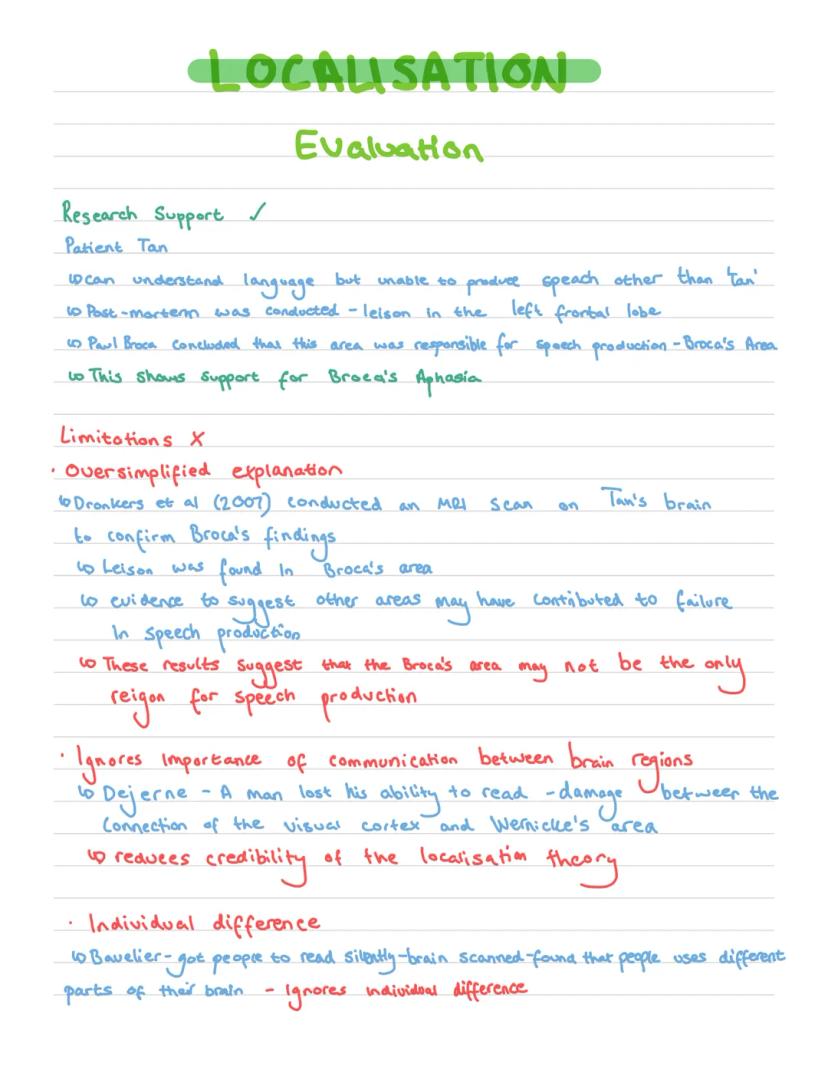 LOCALISATION
Evaluation
Research Support ✓
Patient Tan
↳ can understand language but unable to produce speach other than 'Tan'
↳ Post-morterm was conducted - leison in the left frontal lobe
↳ Paul Broca concluded that this area was responsible for speech production - Broca's Area
↳ This shows support for Broca's Aphasia
Limitations X
• Oversimplified explanation
↳ Dronkers et al (2007) conducted an MRI scan on Tan's brain
to confirm Broca's findings
↳ Leison was found in Broca's area
↳ evidence to suggest other areas may have contributed to failure
in speech production
↳ These results suggest that the Broca's area may not be the only
reigon for speech production
• Ignores importance of communication between brain regions
↳ Dejerne - A man lost his ability to read - damage between the
connection of the visual cortex and Wernicke's area
↳ reduces credibility of the localisation theory
• Individual difference
↳ Bavelier - got people to read silently - brain scanned - found that people uses different
parts of their brain - Ignores individual difference